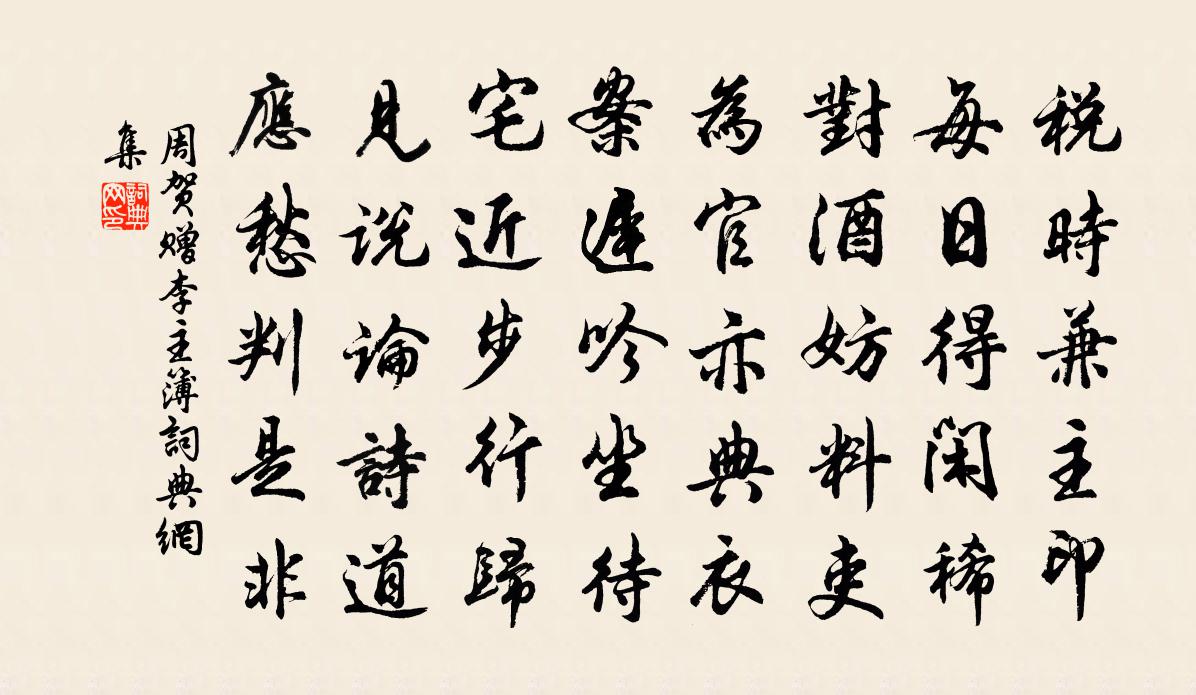 税時兼主印
每日得閑稀
對酒妨料吏
為官亦典衣
案遲吟坐待
宅近步行歸
見説論詩道
應愁判是非
周贺赠李主簿詞典網
集
詞典
网印